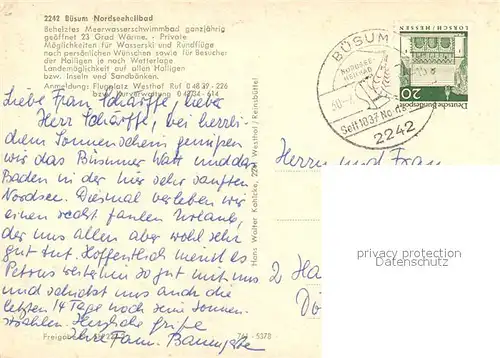 2242 Büsum Nordseeheilbad
Beheiztes Meerwasserschwimmbad ganzjährig
geöffnet 23 Grad Wärme. - Private
Möglichkeiten für Wasserski und Rundflüge
nach persönlichen Wünschen sowie für Besucher
der Halligen je nach Wetterlage
Landemöglichkeit auf allen Halligen
bzw. Inseln und Sandbänken.
Anmeldung: Flugplatz Westhof Ruf 0 48 39 - 226
bzw. Kurverwaltung 0 48 34 - 614
Liebe Frau Schärffe, lieber
Herr Schärffe, bei herrli-
chem Sonnenschein genießen
wir das Büsumer Watt und das
Baden in der hier sehr sanften
Nordsee. Diesmal verleben wir
einen recht faulen Urlaub,
der uns allen aber wohl sehr
gut tut. Hoffentlich meint es
Petrus weiterhin so gut mit uns
und schickt uns auch die
letzten 14 Tage noch seine Sonnen-
strahlen. Herzliche Grüße
Ihre Fam.
Hans Walter Kahlcke, 2241 Westhof / Reinsbüttel
761 - 5378
BÜSUM
NORDSEE-
HEILBAD
Seit 1837
2242
LORSCH / HESSEN
20
Deutsche Bundespost
Herrn und Frau
2 Ha
privacy protection
www.oldthing.de